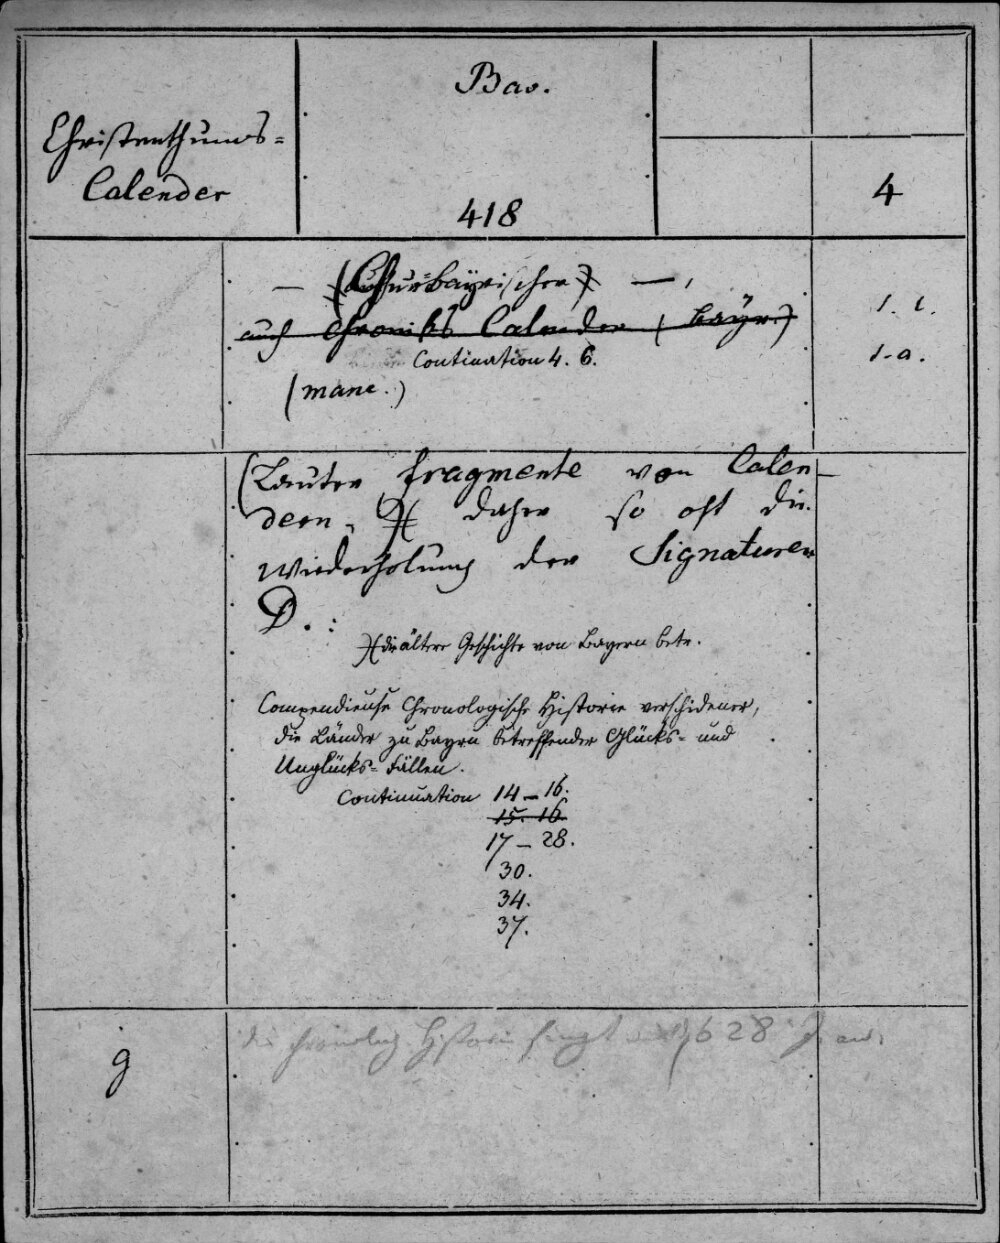 Bav.
Christenthums=
Calender
418
4
— (Churbayrischer) —,
auch Chroniks Calender (bayr.)
1. l.
Continuation 4. 6.
1. a.
(manc.)
(Lauter fragmente von Calen
dern, )( daher so oft die
Wiederholung der Signaturen
D. :
)( die ältere Geschichte von Bayern betr.
Compendieuse Chronologische Historie verschidener,
die Länder zu Bayrn betreffender Glücks= und
Unglücks= Fällen.
Continuation 14 — 16.
15. 16.
17 — 28.
30.
34.
37.
g
die Historie fingt 1628 an.